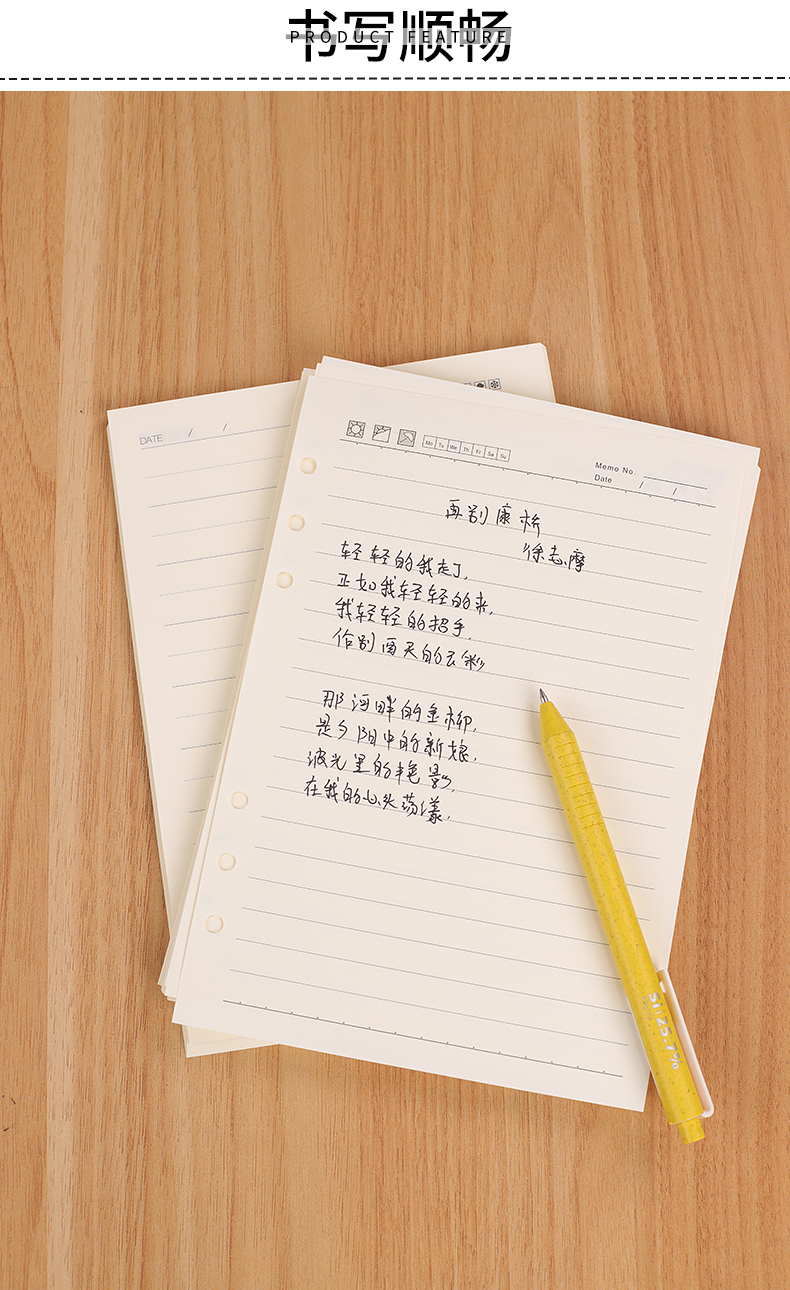 书写顺畅
PRODUCT FEATURE
DATE / /
Mo Tu We Th Fr Sa Su
Memo No.
Date / /
再别康桥
徐志摩
轻轻的我走了,
正如我轻轻的来,
我轻轻的招手,
作别西天的云彩
那河畔的金柳,
是夕阳中的新娘,
波光里的艳影,
在我的心头荡漾.
Si:25.7%